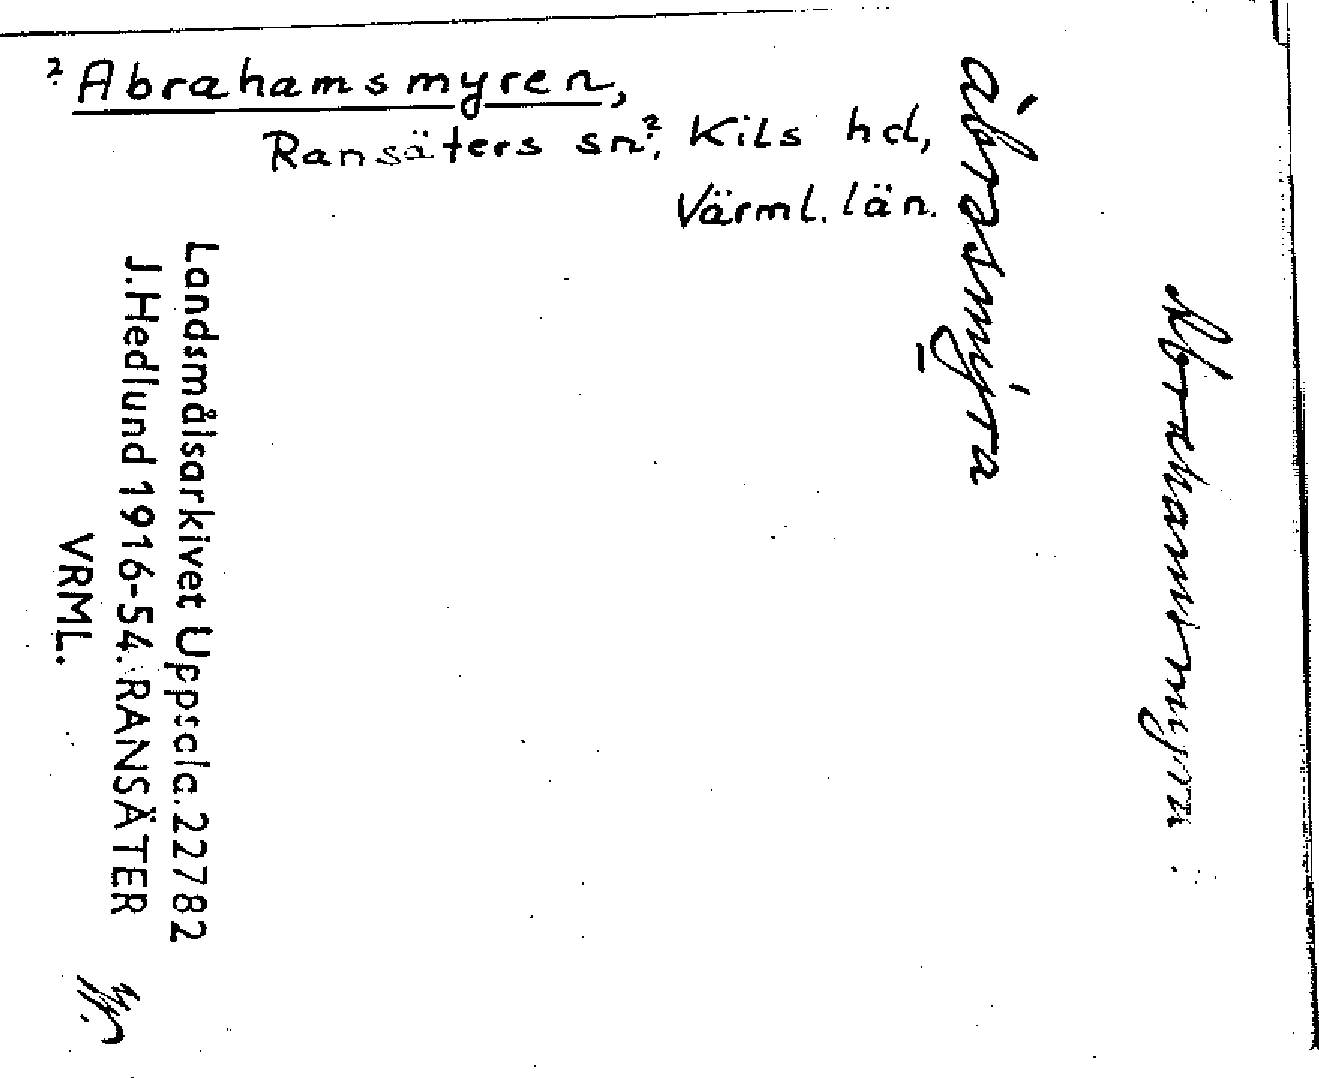 ? Abrahamsmyren,
Ransäters sn?, Kils hd,
Värml. län.
Abrahamsmyra
ábrasmýra
Landsmålsarkivet Uppsala. 22782
J. Hedlund 1916-54. RANSÄTER
VRML.